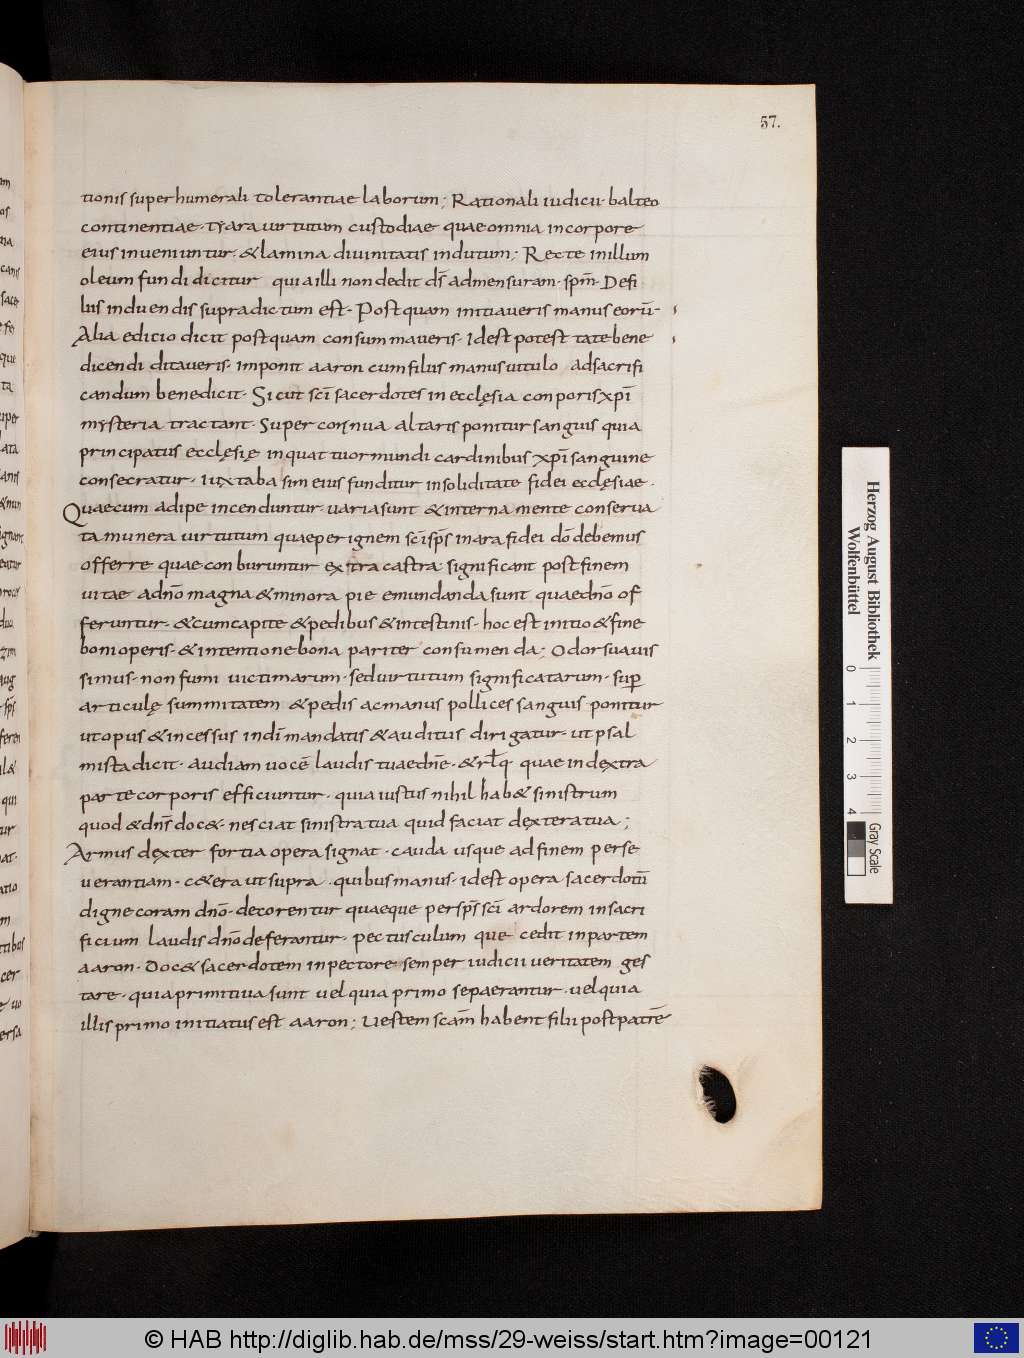 57.
tionis superhumerali tolerantiae laborum; Rationali iudicii· balteo
continentiae· tyara uirtutum custodiae quae omnia incorpore
eius inueniuntur· & lamina diuinitatis indutum; Recte inillum
oleum fundi dicitur quia illi non dedit ds̄ admensuram· spm̄· Defi
liis induendis supradictum est· Postquam initiaueris manus eorū·
Alia editio dicit postquam consummaueris· Idest potestate bene
dicendi ditaueris· imponit aaron cumfiliis manus uitulo adsacrifi
candum benedicit· Sicut scī sacerdotes in ecclęsia corporis xpī
mysteria tractant· Super cornua altaris ponitur sanguis quia
principatus ecclęsię inquattuor mundi cardinibus xpī sanguine
consecratur· Iuxta basim eius funditur insoliditate fidei ecclęsiae·
Quaecum adipe incenduntur uaria sunt & interna mente conserua
ta munera uirtutum quaeper ignem scī sps̄ inara fidei dō debemus
offerre quae conburuntur extra castra significant post finem
uitae adnō magna & minora pie emundanda sunt quaednō of
feruntur· & cumcapite & pedibus & intestinis· hoc est initio & fine
boni operis· & intentione bona pariter consumenda; Odor suauis
simus· non fumi uictimarum· seduirtutum significatarum· suꝑ
articulę summitatem & pedis acmanus pollices sanguis ponitur
utopus & incessus indī mandatis & auditus dirigatur· ut psal
mista dicit· audiam uocē laudis tuae dnē· & rłq· quae in dextra
parte corporis efficiuntur· quia iustus nihil hab& sinistrum
quod & dns̄ doc&· nesciat sinistra tua quid faciat dextera tua;
Armus dexter fortia opera signat· cauda usque adfinem perse
uerantiam· c&era ut supra· quibus manus· idest opera sacerdotū
digne coram dnō· decorentur quaeque persps̄ scī ardorem insacri
ficium laudis dnō deferantur· pectusculum que cedit inpartem
aaron· Doc& sacerdotem inpectore semper iudicii ueritatem ges
tare· quia primitiua sunt uel quia primo sepaerantur· uel quia
illis primo initiatus est aaron; Uestem scam̄ habent filii post patrē
Herzog August Bibliothek
Wolfenbüttel
0 1 2 3 4
Gray Scale
© HAB http://diglib.hab.de/mss/29-weiss/start.htm?image=00121